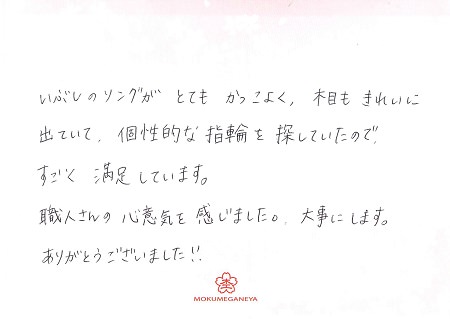 いぶしのリングが とても かっこよく, 木目も きれいに
出ていて, 個性的な 指輪を 探していたので,
すごく 満足しています。
職人さんの 心意気を 感じました。大事にします。
ありがとうございました!!
MOKUMEGANEYA